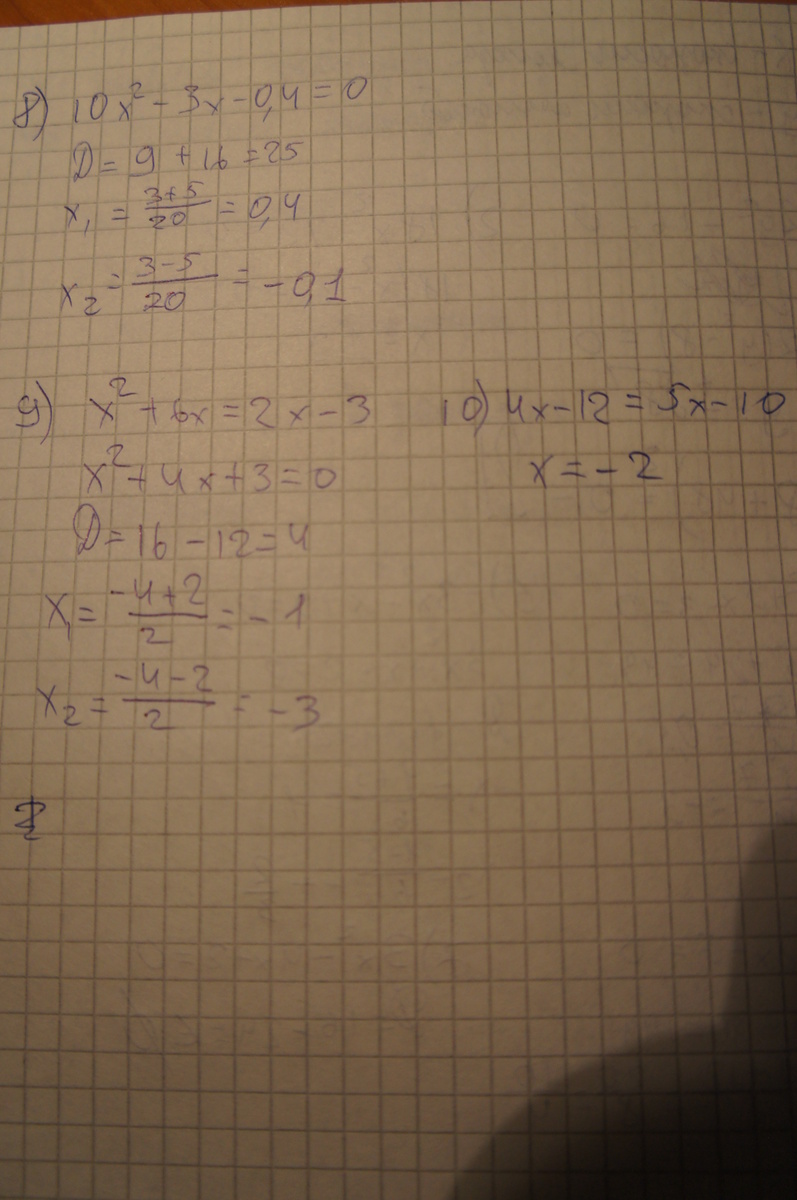 8) 10x² - 3x - 0,4 = 0
D = 9 + 16 = 25
x₁ = (3+5)/20 = 0,4
x₂ = (3-5)/20 = -0,1
9) x² + 6x = 2x - 3
x² + 4x + 3 = 0
D = 16 - 12 = 4
x₁ = (-4+2)/2 = -1
x₂ = (-4-2)/2 = -3
10) 4x - 12 = 5x - 10
x = -2